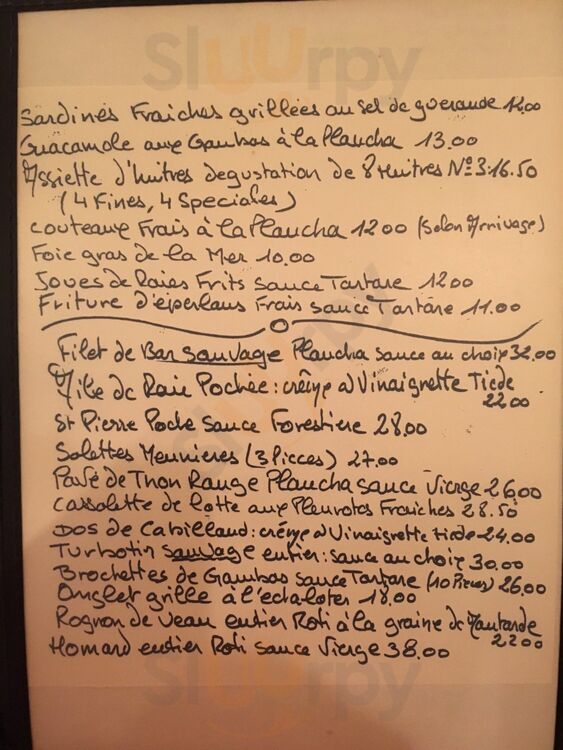 Sluurpy
Sardines Fraiches grillées au sel de guerande 12.00
Guacamole aux Gambas à la Plancha 13.00
Assiette d'huitres degustation de 8 Huitres N°3.16.50
(4 Fines, 4 Speciales)
Couteaux Frais à la Plancha 12 00 (Selon Arrivage)
Foie gras de la Mer 10.00
Joues de Raies Frits Sauce Tartare 12 00
Friture d'éperlans Frais sauce Tartare 11.00
Filet de Bar sauvage Plancha sauce au choix 32.00
Aile de Raie Pochée: crème ou Vinaigrette Tiede
22 00
St Pierre Poche Sauce Forestiere 28.00
Solettes Meunieres (3 Pieces) 27.00
Pavé de Thon Rouge Plancha sauce Vierge 26.00
Cassolette de lotte aux Pleurotes Fraiches 28.50
Dos de Cabillaud: crème ou Vinaigrette tiede 24.00
Turbotin sauvage entier: sauce au choix 30.00
Brochettes de Gambas sauce Tartare (10 Pieces) 26.00
Onglet grille à l'echaloter 18.00
Rognon de Veau entier Roti à la graine de Moutarde
22 00
Homard entier Roti sauce Vierge 38.00
Sluurpy